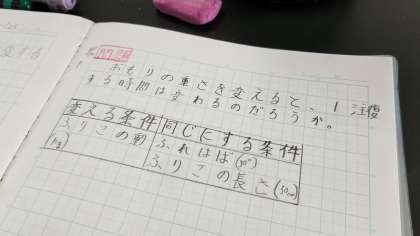 問題
おもりの重さを変えると、1往復
する時間は変わるのだろうか。
変える条件 同じにする条件
ふりこの重 ふれはば(30°)
ふりこの長さ(50cm)